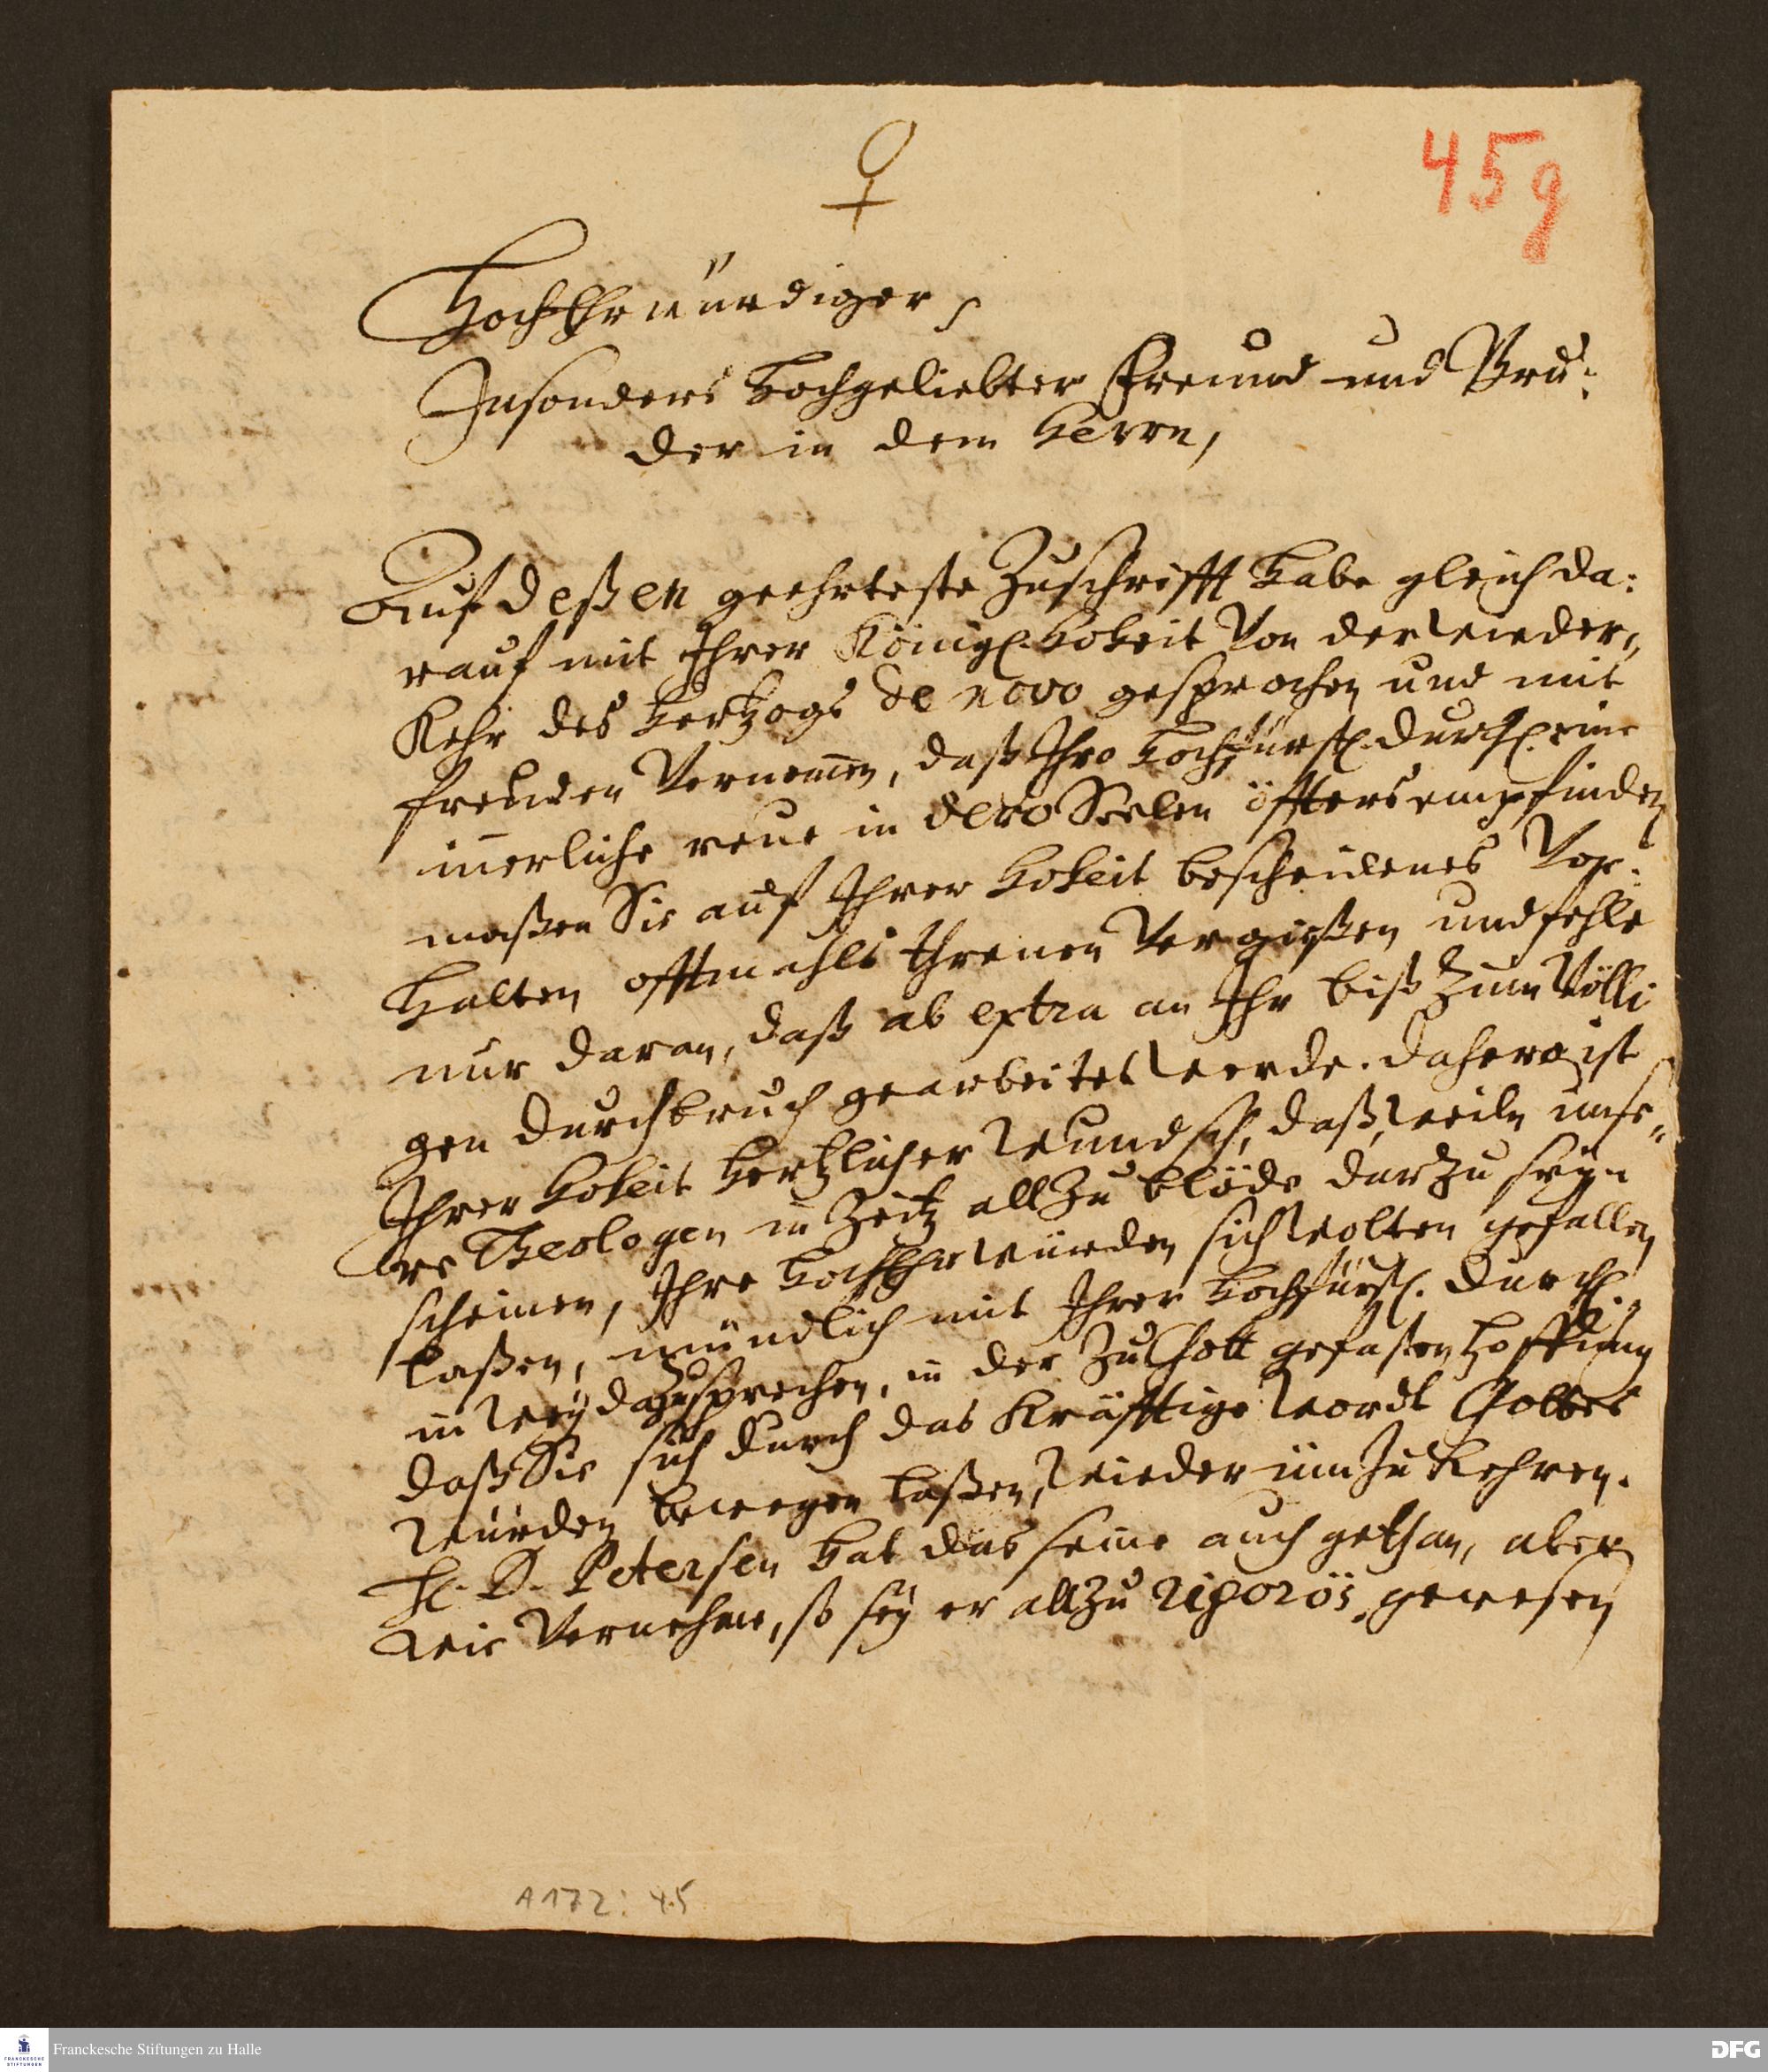 ♀
45g
HochEhrwürdiger,
Insonders hochgeliebter Freund und Bru:
der in dem Herrn,
Auf deßen geehrteste Zuschrifft habe gleich da:
rauf mit Ihrer Königl. Hoheit von der wieder,
Kehr des Hertzogs de novo gesprochen und mit
freuden vernom̄en, daß Ihro hochfürstl. Durchl. eine
iñerliche reue in dero Seelen öffters empfinden
maßen Sie auf Ihrer Hoheit bescheidenes Vor:
halten offtmahls threnen vergießen und fehle
nur daran, daß ab extra an Ihr biß zum völli
gen durchbruch gearbeitet werde. Dahero ist
Ihrer Hoheit hertzlicher wundsch, daß, weiln unse„
re Theologen in Zeitz allzu blöde darzu seyn
scheinen, Ihre HochEhrwürden sich wolten gefallen
laßen, mündlich mit Ihrer hochfürstl. Durchl.
in Weyda zusprechen, in der zu Gott gefaßten Hoffnung
daß Sie sich durch das kräfftige wordt Gottes
würden bewegen laßen, wieder üm zu kehren.
H. D. Petersen hat das seine auch gethan, aber
wie vernehme, so sey er allzu rigorös gewesen
A172: 45
Franckesche Stiftungen zu Halle
FRANCKESCHE STIFTUNGEN
DFG